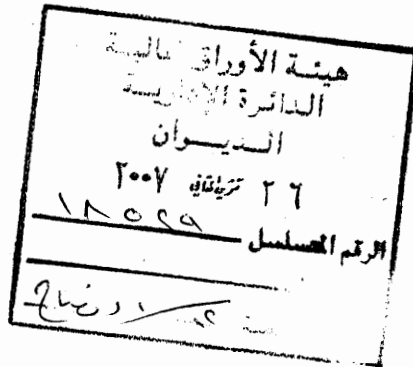 هيئة الأوراق المالية
الدائرة الإدارية
الديوان
٢٦ تشرين ثاني ٢٠٠٧
الرقم المتسلسل ١٨٥٢٩